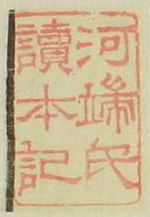 河端氏
讀本記